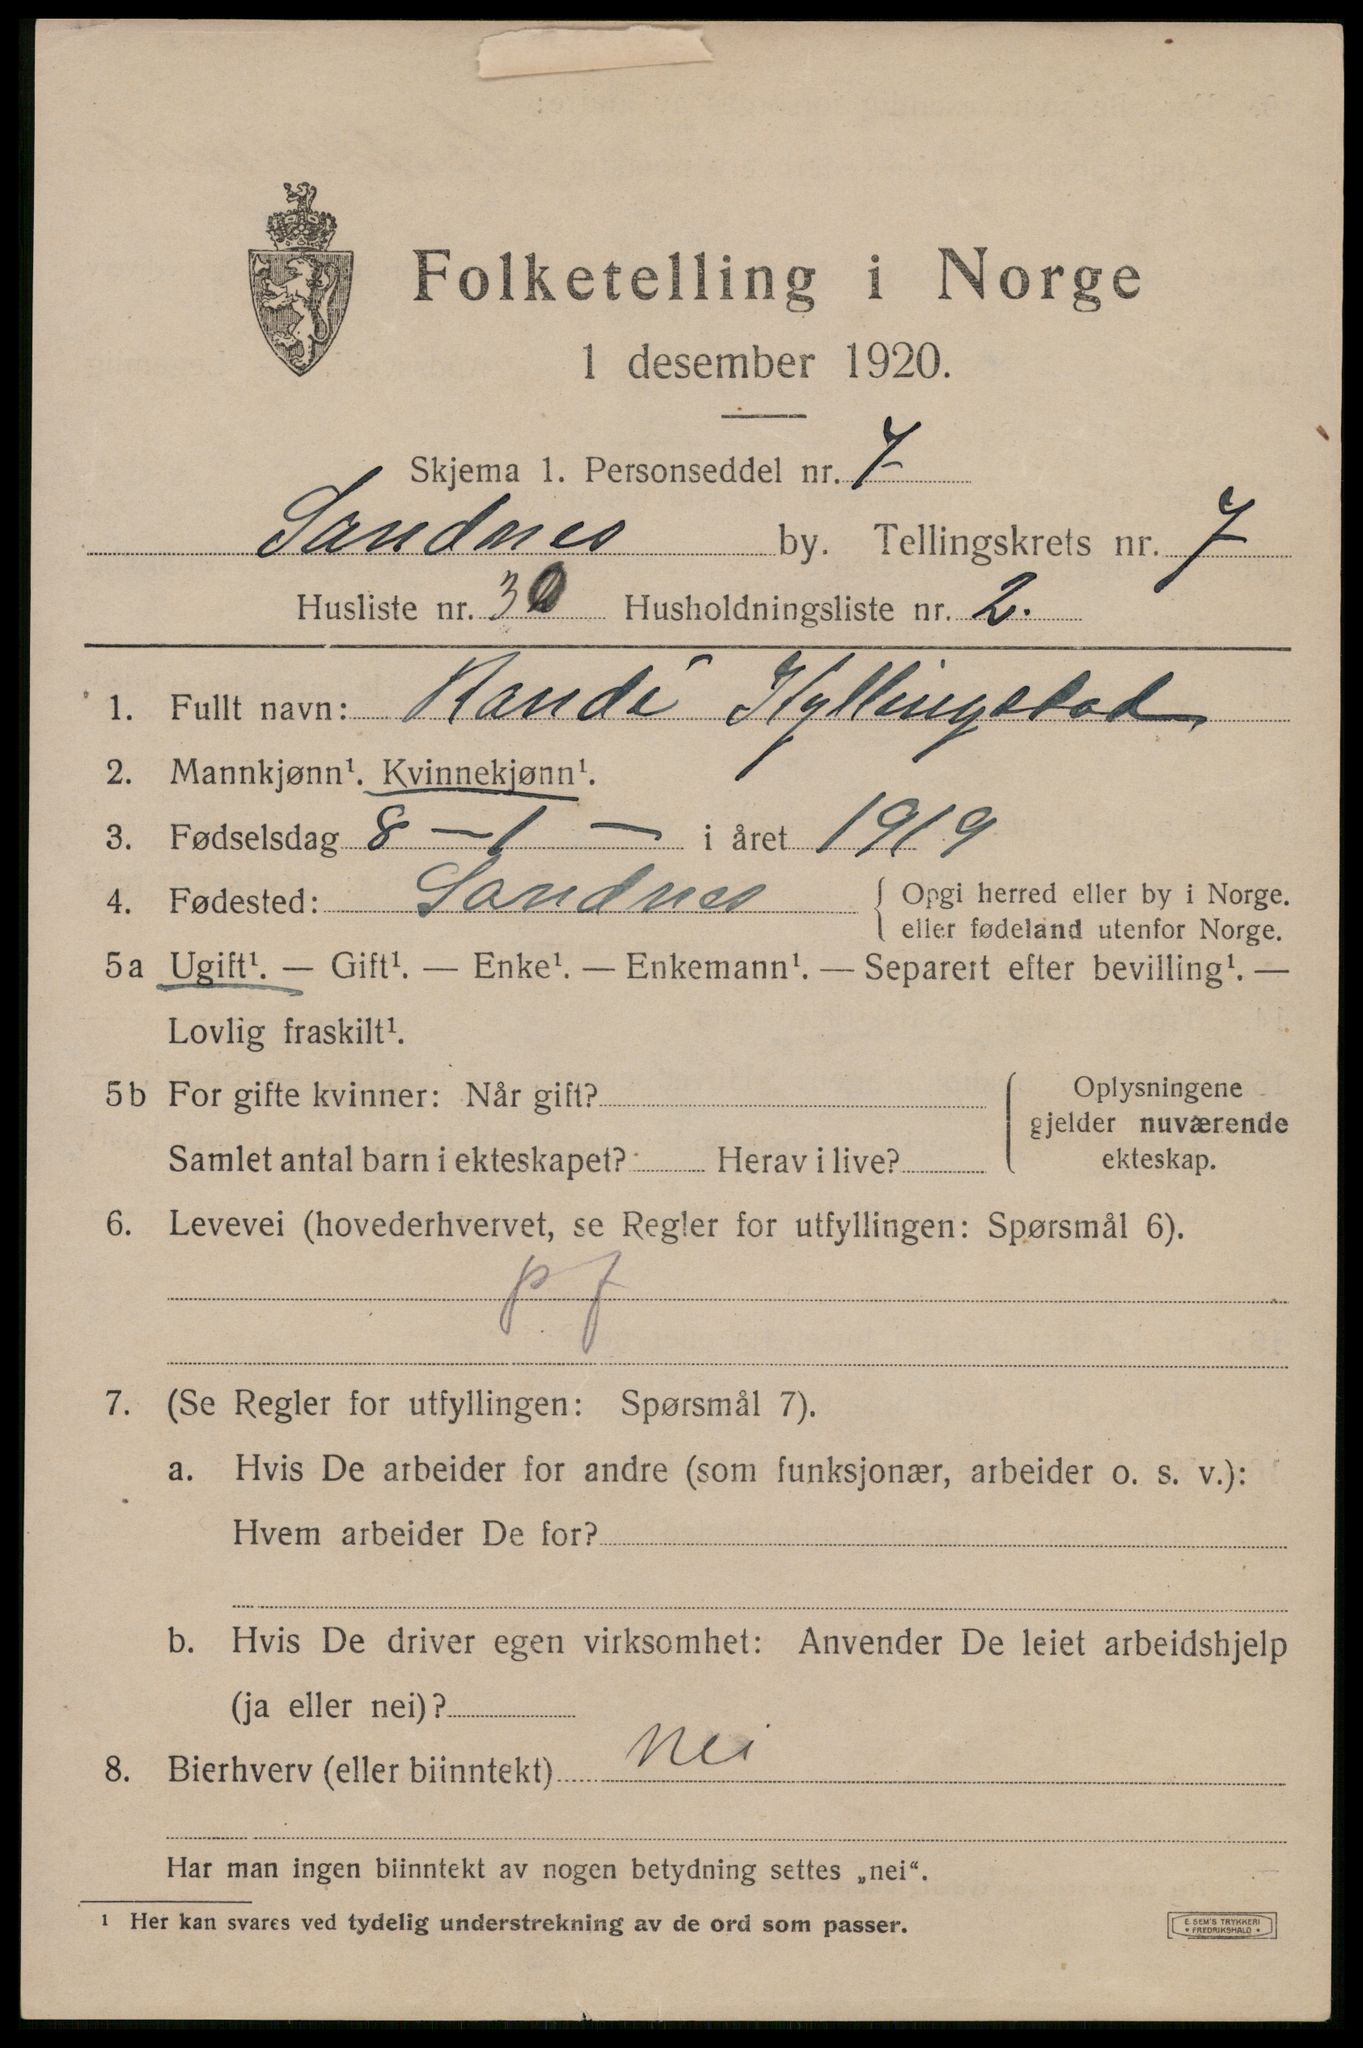 Folketelling i Norge
1 desember 1920.
Skjema 1. Personseddel nr. 7
Sandnes by. Tellingskrets nr. 7
Husliste nr. 30 Husholdningsliste nr. 2.
1. Fullt navn: Randi Kyllingstad
2. Mannkjønn¹. Kvinnekjønn¹.
3. Fødselsdag 8 – 1 – i året 1919
4. Fødested: Sandnes { Opgi herred eller by i Norge.
eller fødeland utenfor Norge.
5a Ugift¹. — Gift¹. — Enke¹. — Enkemann¹. — Separert efter bevilling¹. —
Lovlig fraskilt¹.
5b For gifte kvinner: Når gift? Oplysningene
gjelder nuværende
Samlet antal barn i ekteskapet? Herav i live? ekteskap.
6. Levevei (hovederhvervet, se Regler for utfyllingen: Spørsmål 6).
pf
7. (Se Regler for utfyllingen: Spørsmål 7).
a. Hvis De arbeider for andre (som funksjonær, arbeider o. s. v.):
Hvem arbeider De for?
b. Hvis De driver egen virksomhet: Anvender De leiet arbeidshjelp
(ja eller nei)?
8. Bierhverv (eller biinntekt) nei
Har man ingen biinntekt av nogen betydning settes „nei“.
¹ Her kan svares ved tydelig understrekning av de ord som passer.
E. SEM'S TRYKKERI
• FREDRIKSHALD •